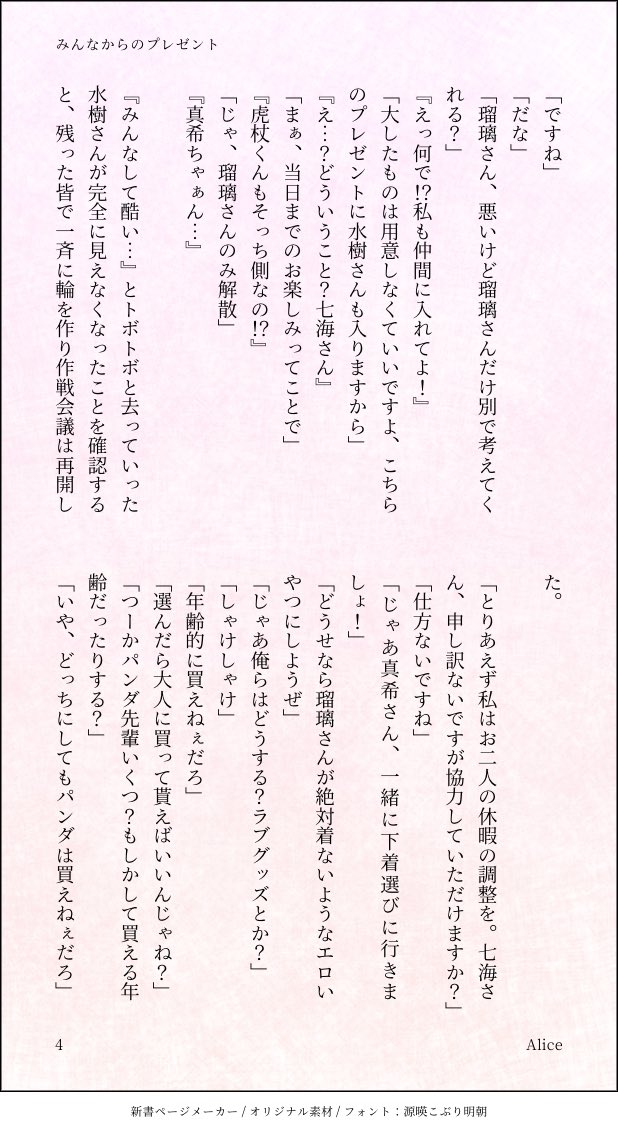 みんなからのプレゼント
「ですね」
「だな」
「瑠璃さん、悪いけど瑠璃さんだけ別で考えてく
れる？」
『えっ何で!?私も仲間に入れてよ！』
「大したものは用意しなくていいですよ、こちら
のプレゼントに水樹さんも入りますから」
『え…？どういうこと？七海さん』
「まぁ、当日までのお楽しみってことで」
『虎杖くんもそっち側なの!?』
「じゃ、瑠璃さんのみ解散」
『真希ちゃぁん…』
『みんなして酷い…』とトボトボと去っていった
水樹さんが完全に見えなくなったことを確認する
と、残った皆で一斉に輪を作り作戦会議は再開し
た。
「とりあえず私はお二人の休暇の調整を。七海さ
ん、申し訳ないですが協力していただけますか？」
「仕方ないですね」
「じゃあ真希さん、一緒に下着選びに行きま
しょ！」
「どうせなら瑠璃さんが絶対着ないようなエロい
やつにしようぜ」
「じゃあ俺らはどうする？ラブグッズとか？」
「しゃけしゃけ」
「年齢的に買えねぇだろ」
「選んだら大人に買って貰えばいいんじゃね？」
「つーかパンダ先輩いくつ？もしかして買える年
齢だったりする？」
「いや、どっちにしてもパンダは買えねぇだろ」
4
Alice
新書ページメーカー / オリジナル素材 / フォント：源暎こぶり明朝